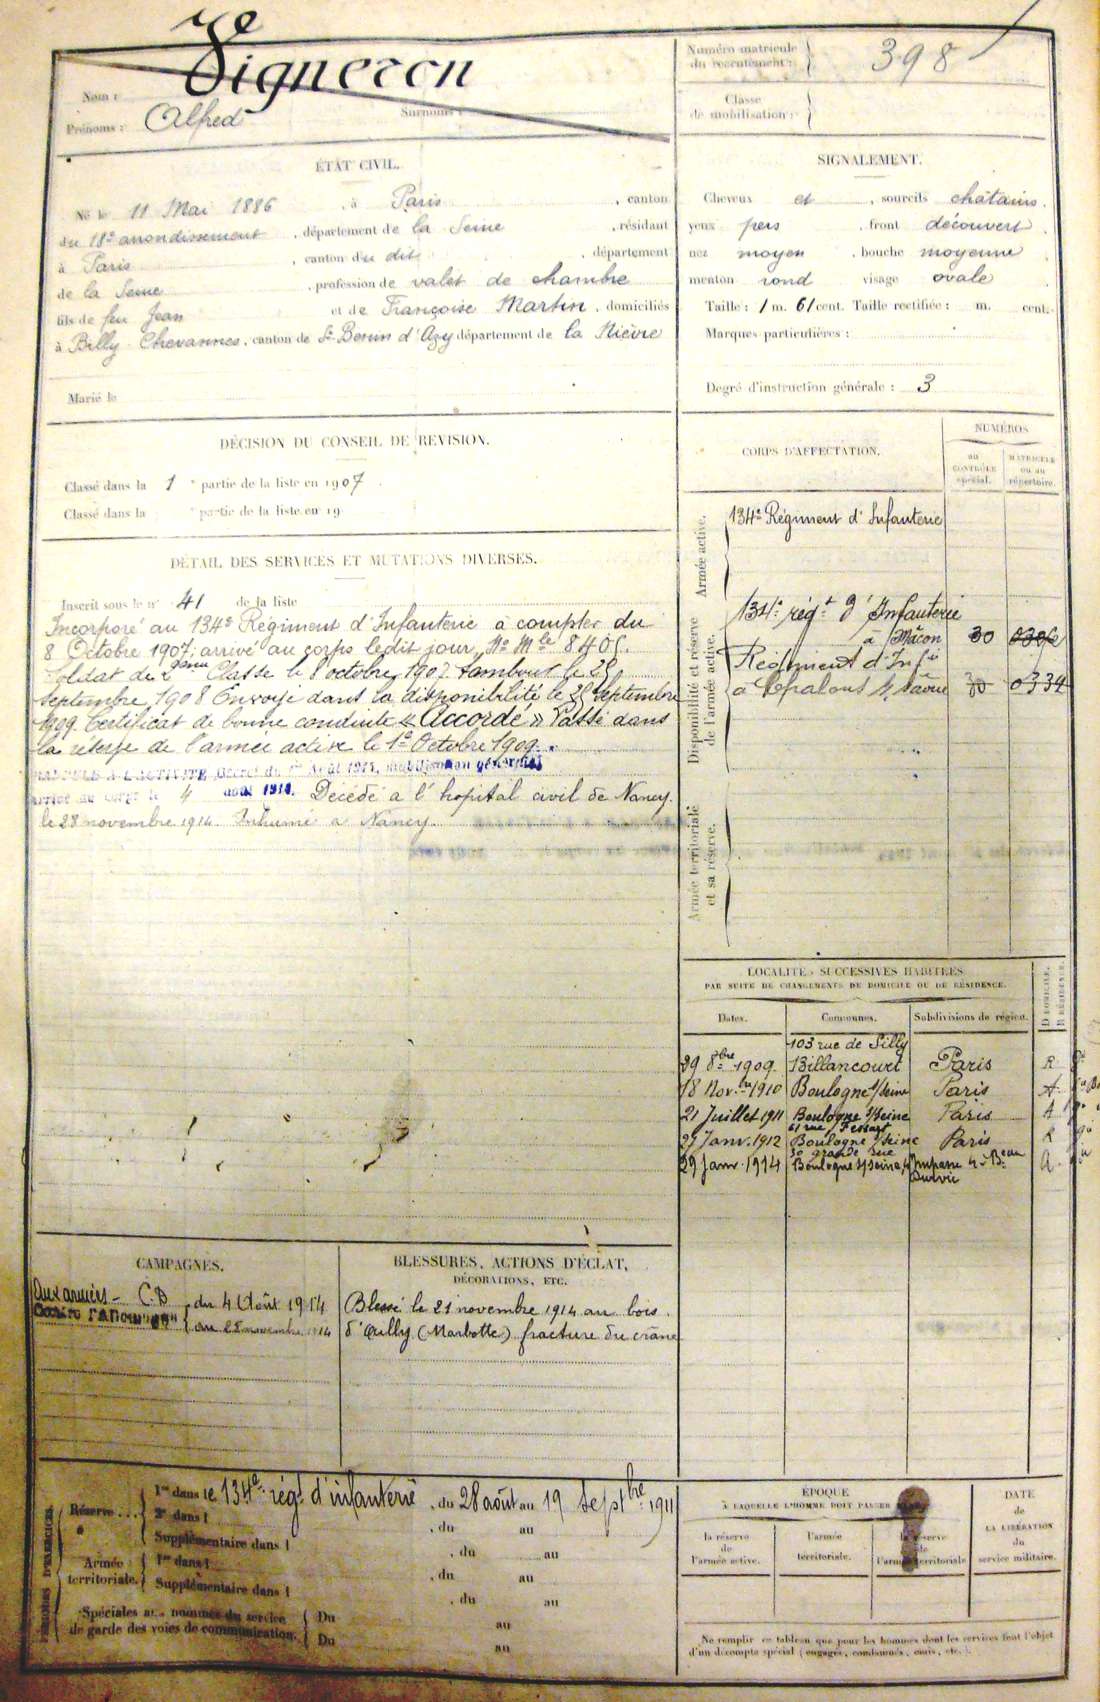 Vigneron
Nom :
Prénoms : Alfred
Surnoms :
Numéro matricule
du recrutement :
398
Classe
de mobilisation :
ÉTAT CIVIL.
Né le 11 Mai 1886 , à Paris , canton
du 18e arrondissement , département de la Seine , résidant
à Paris , canton du dit , département
de la Seine , profession de valet de chambre
fils de feu Jean et de Françoise Martin , domiciliés
à Billy-Chevannes, canton de St Benin d'Azy département de la Nièvre
Marié le
SIGNALEMENT.
Cheveux et , sourcils châtains.
yeux pers , front découvert
nez moyen , bouche moyenne
menton rond visage ovale
Taille : 1 m. 61 cent. Taille rectifiée : m. cent.
Marques particulières :
Degré d'instruction générale : 3
DÉCISION DU CONSEIL DE REVISION.
Classé dans la 1 e partie de la liste en 1907
Classé dans la e partie de la liste en 19
DÉTAIL DES SERVICES ET MUTATIONS DIVERSES.
Inscrit sous le n° 41 de la liste
Incorporé au 134e Régiment d'Infanterie à compter du
8 Octobre 1907, arrivé au corps ledit jour, No Mle 8405.
Soldat de 2ème Classe le 8 octobre 1907 tambour le 25
septembre 1908 Envoyé dans la disponibilité le 25 Septembre
1909 Certificat de bonne conduite « Accordé » Passé dans
la réserve de l'armée active le 1e Octobre 1909.
RAPPELÉ A L'ACTIVITÉ Décret du 1er Août 1914, mobilisation générale
arrivé au corps le 4 août 1914. Décédé à l'hopital civil de Nancy.
le 28 novembre 1914 Inhumé à Nancy
CORPS D'AFFECTATION.
NUMÉROS
au
CONTRÔLE
spécial.
MATRICULE
ou au
répertoire.
Armée active.
134e Régiment d'Infanterie
Disponibilité et réserve
de l'armée active.
134e régt d'Infanterie
à Mâcon 30
Régiment d'Infie
à Chalons s/ Saône 30 0334
Armée territoriale
et sa réserve.
LOCALITÉS SUCCESSIVES HABITÉES
PAR SUITE DE CHANGEMENTS DE DOMICILE OU DE RÉSIDENCE.
Dates. Communes. Subdivisions de région. DOMICILE. RÉSIDENCE.
103 rue de Silly
29 8bre 1909 Billancourt Paris R
18 Nov.bre 1910 Boulogne s/Seine Paris A
21 Juillet 1911 Boulogne s/Seine Paris A
61 rue Fessart
27 Janv. 1912 Boulogne s/Seine Paris R
30 grande Rue
29 Janv. 1914 Boulogne s/Seine, 4 Impasse
CAMPAGNES.
Aux armées - C.D du 4 Août 1914
Contre l'Allemagne au 28 novembre 1914
BLESSURES, ACTIONS D'ÉCLAT,
DÉCORATIONS, ETC.
Blessé le 21 novembre 1914 au bois
d'Ailly (Marbotte) fracture du crâne
PÉRIODES D'EXERCICES
Réserve . . . 1re dans le 134e régt d'infanterie , du 28 août au 19 Septbre 1911
2e dans l , du au
Supplémentaire dans l , du au
Armée
territoriale. 1re dans l , du au
Supplémentaire dans l , du au
Spéciales aux hommes du service
de garde des voies de communication.
Du au
Du au
ÉPOQUE
À LAQUELLE L'HOMME DOIT PASSER DANS
la réserve
de
l'armée active.
l'armée
territoriale.
la réserve
de
l'armée territoriale
DATE
de
LA LIBÉRATION
du
service militaire.
Ne remplir ce tableau que pour les hommes dont les services font l'objet
d'un décompte spécial (engagés, condamnés, omis, etc.).